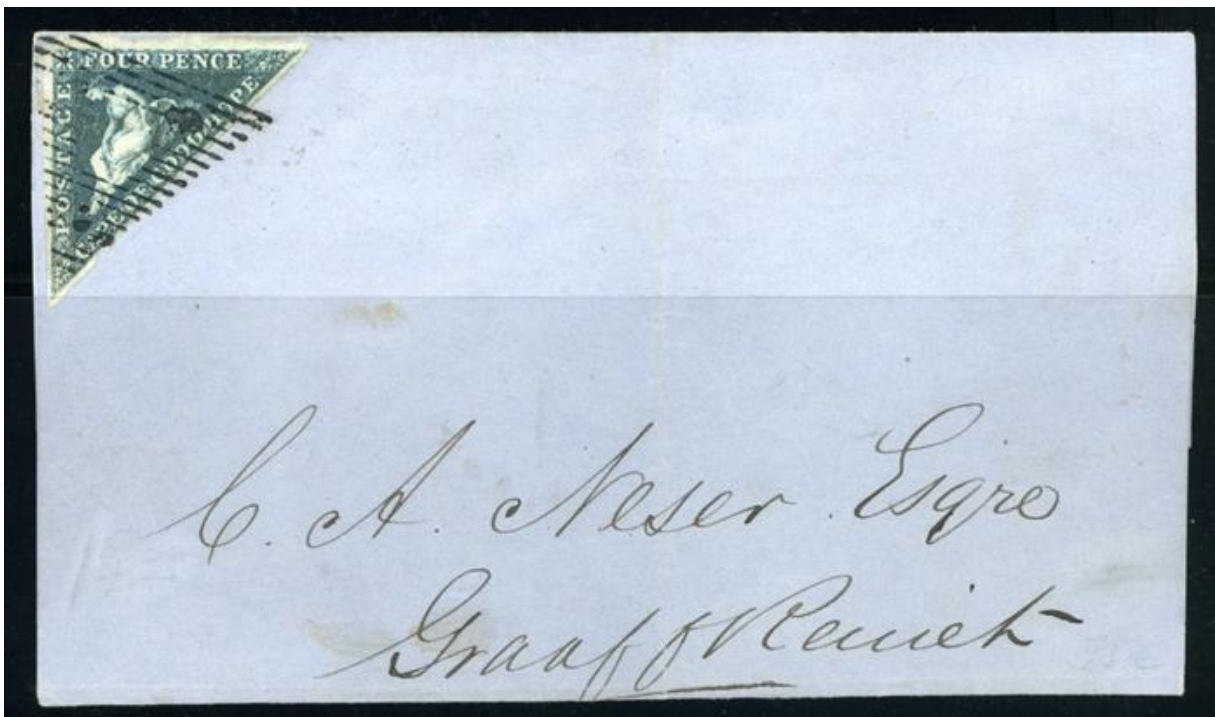 FOUR PENCE
POSTAGE
CAPE OF GOOD HOPE
C. A. Neser Esqre
Graaff Reinet